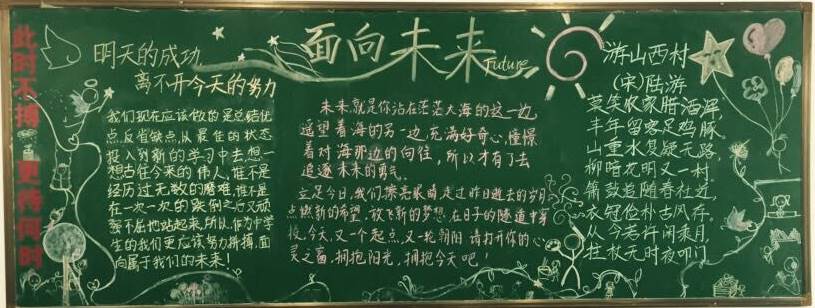 此时不搏 更待何时
面向未来
Future
明天的成功
离不开今天的努力
我们现在应该做的是总结优
点,反省缺点,从最佳的状态
投入到新的学习中去,想一
想古往今来的伟人,谁不是
经历过无数的磨难,谁不是
在一次一次的跌倒之后又顽
强不屈地站起来,所以,作为中学
生的我们更应该努力拼搏,面
向属于我们的未来!
未来,就是你站在茫茫大海的这一边,
遥望着海的另一边,充满好奇心,憧憬
着对海那边的向往,所以才有了去
追逐未来的勇气。
立足今日,我们擦亮眼睛,走过昨日逝去的岁月,
点燃新的希望,放飞新的梦想,在日子的隧道中穿
梭,今天,又一个起点,又一轮朝阳,请打开你的心
灵之窗,拥抱阳光,拥抱今天吧!
游山西村
(宋)陆游
莫笑农家腊酒浑,
丰年留客足鸡豚。
山重水复疑无路,
柳暗花明又一村。
箫鼓追随春社近,
衣冠俭朴古风存。
从今若许闲乘月,
拄杖无时夜叩门。